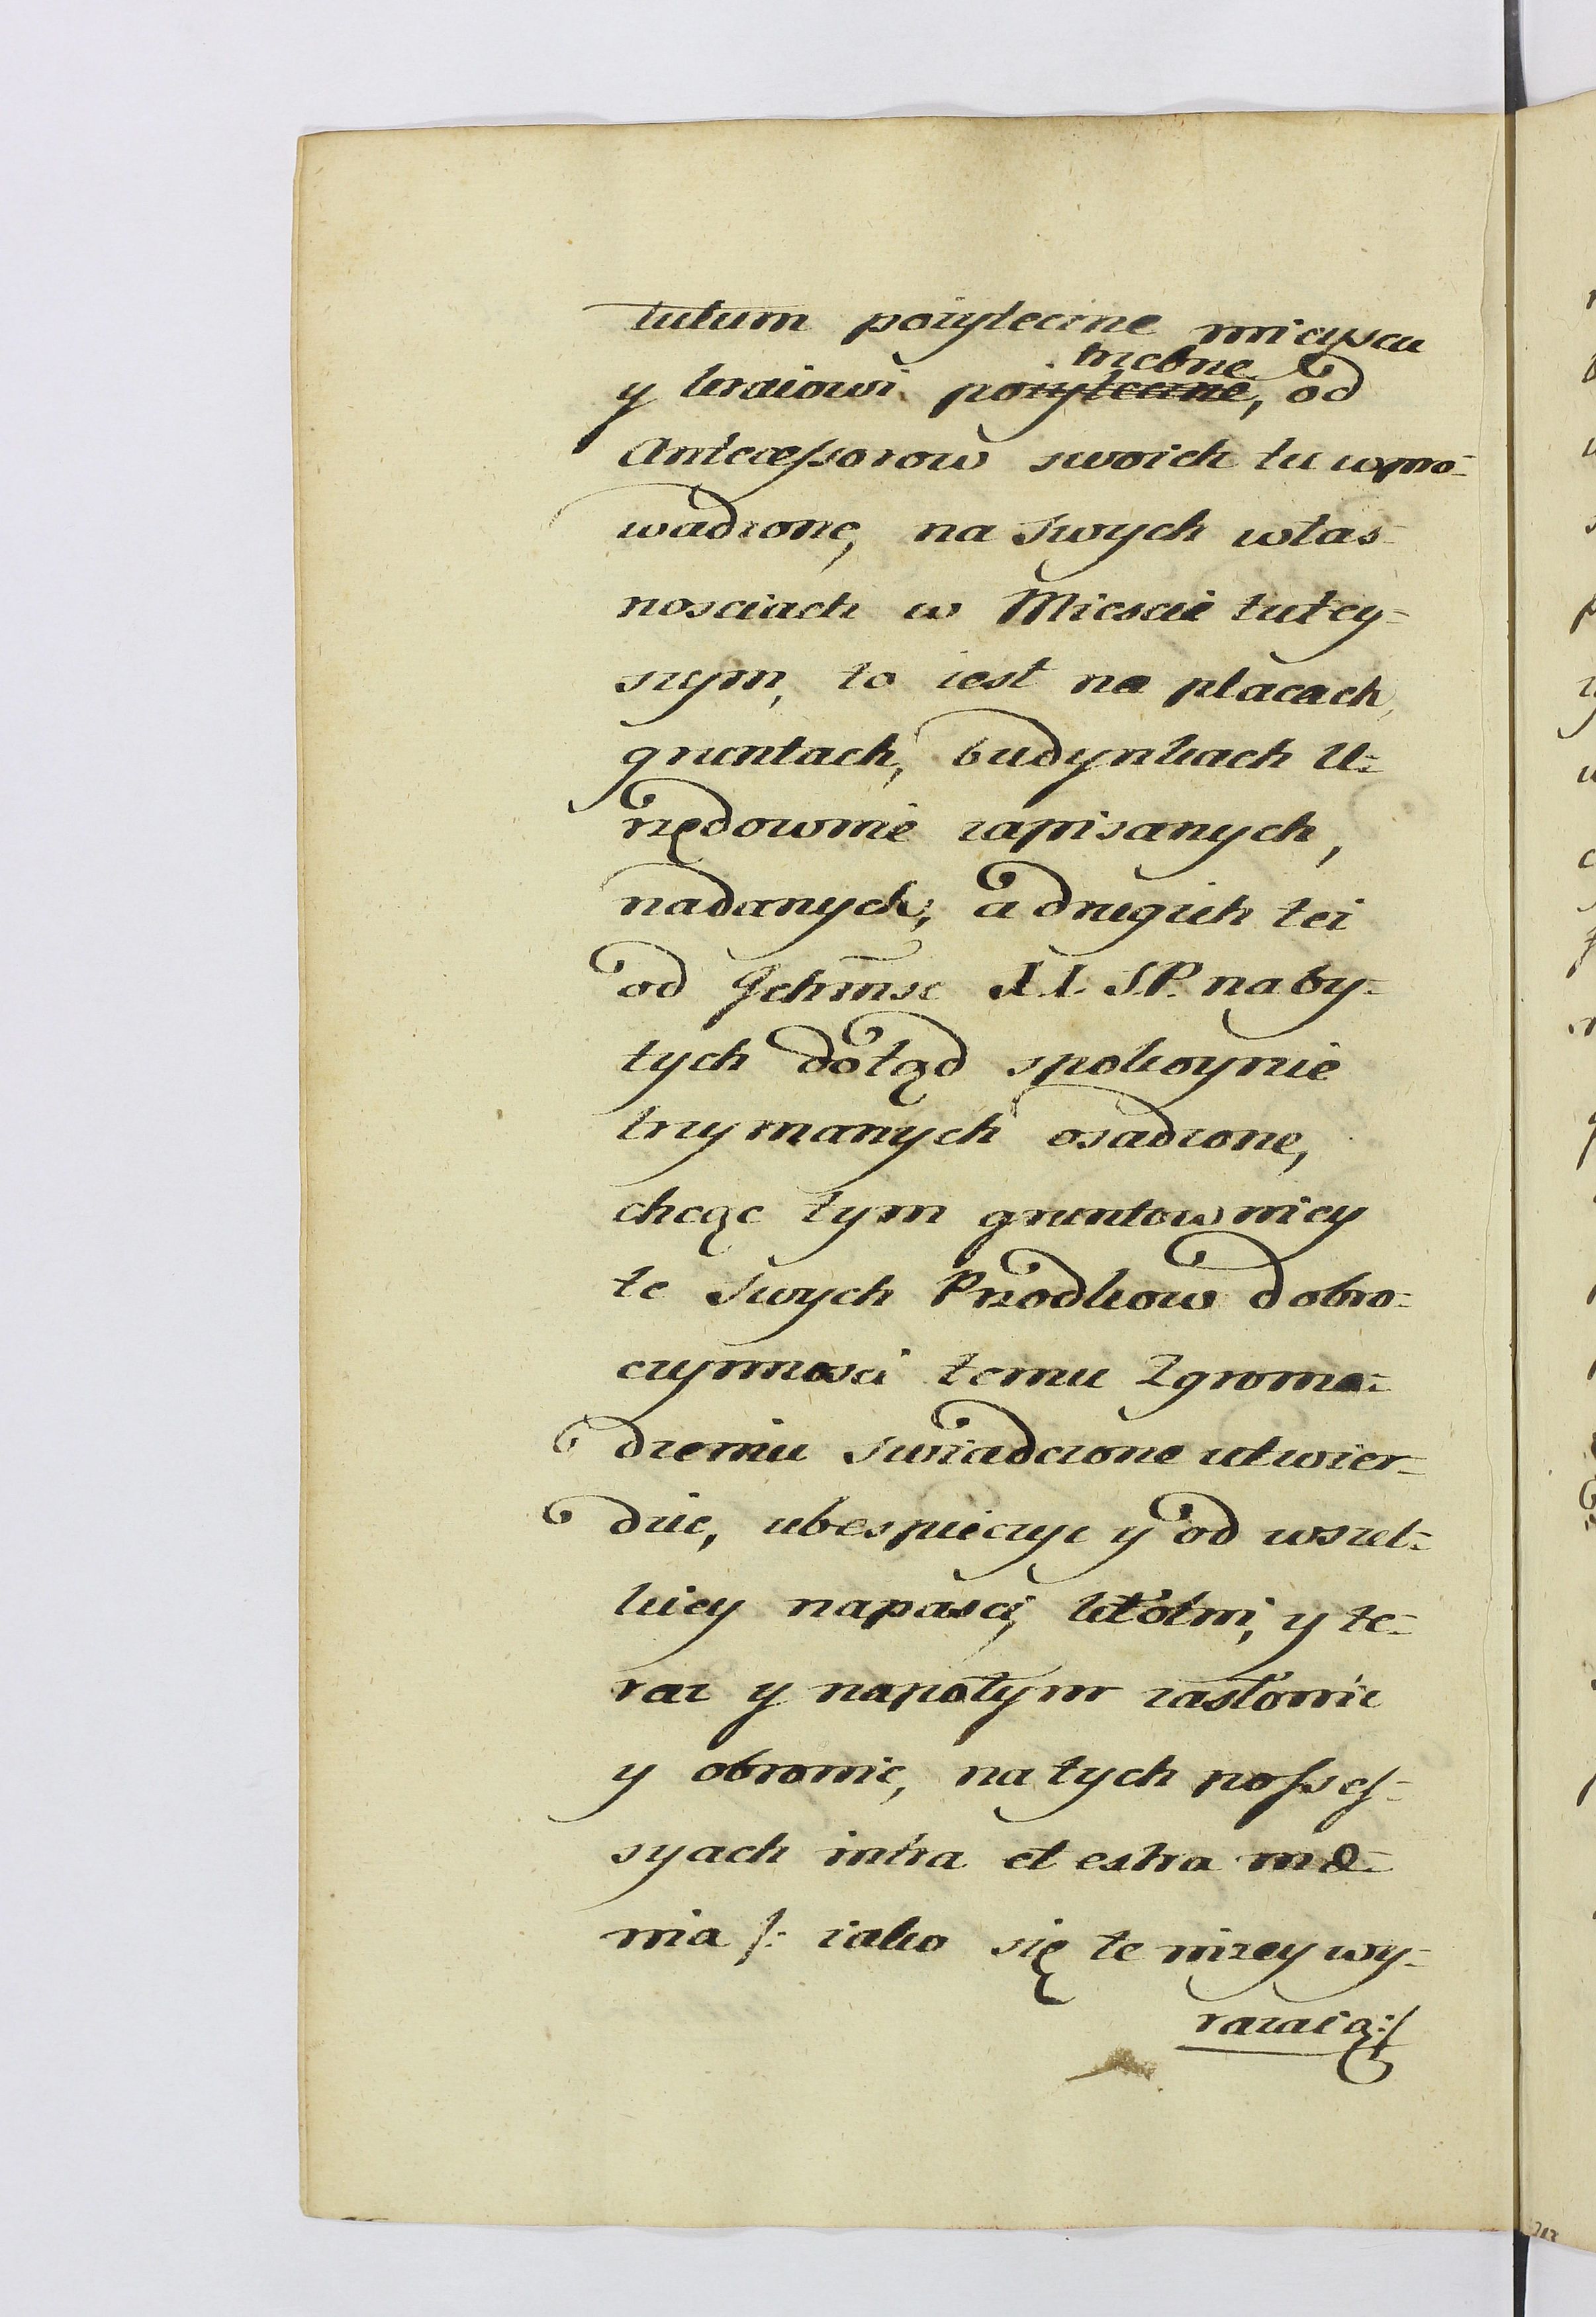 tutum pożyteczne mieyscu
y kraiowi potrzebne, od
Antecessorow swoich tu wpro-
wadzone, na swych włas-
nosciach w Miescie tutey-
szym, to iest na placach,
gruntach, budynkach U-
rzędownie zapisanych,
nadanych, a drugich też
od Ichmsc XX. SP. naby-
tych dotąd spokoynie
trzymanych osadzone,
chcąc tym gruntowniey
te swych Przodkow dobro-
czynnosci temu Zgroma-
dzeniu swiadczone utwier-
dzic, ubespieczyc y od wszel-
kiey napasci, kłotni, y te-
raz y napotym zasłonic
y obronic, na tych posses-
syach intra et extra mæ-
nia /: iako się te niżey wy-
rażaią:/